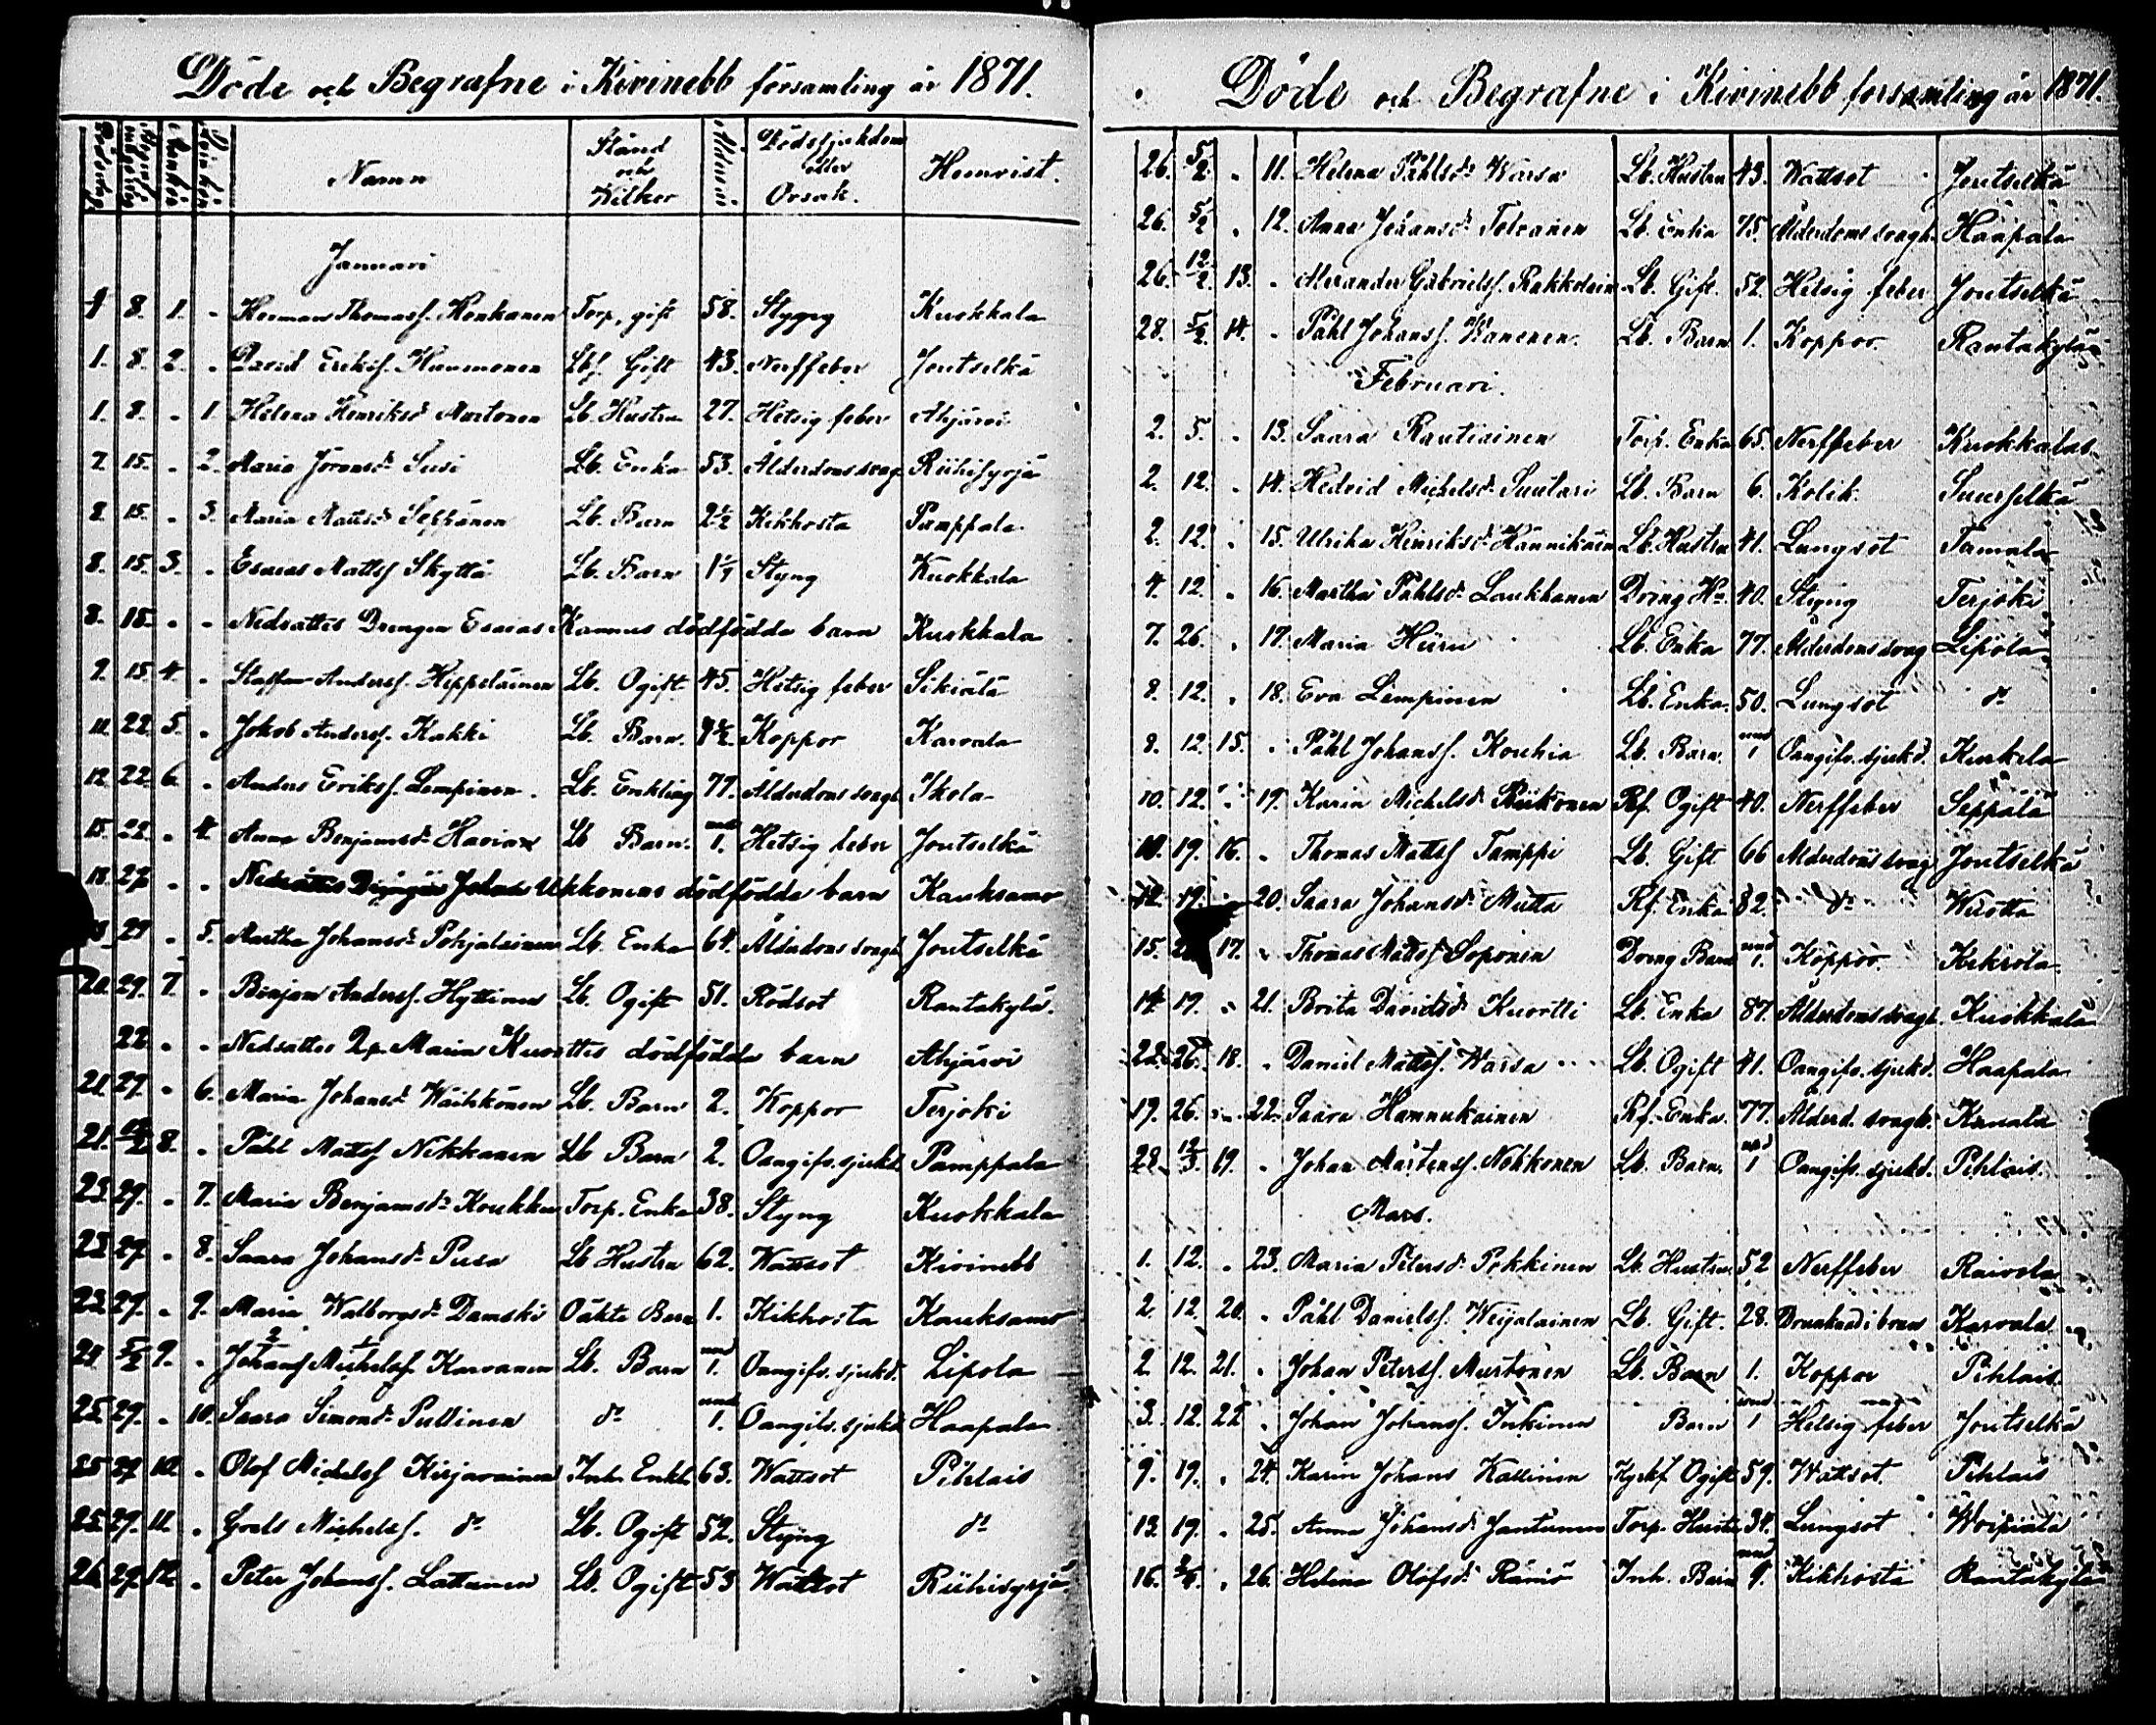 Döde och Begrafne i Kivinebb församling år 1871.
Namn Stånd och Wilkor Ålder Dödssjukdom eller Orsak. Hemvist.
Januari
1 8. 1. - Herman Thomass. Honkanen Torp. gift 58. Styng Kuokkala
1. 8. 2. - David Eriks. Hummonen Lbf. Gift 43. Nerffeber Joutselkä
1. 8. - 1. Helena Henriksdr Murtonen Lb. Hustru 27. Hetsig feber Ahjärvi
7. 15. - 2. Maria Göransdr Susi Lb. Enka 53. Ålderdomssvagh. Riihisyrjä
8. 15. - 3. Maria Mattsdr Seppänen Lb. Barn 2½ Kikhosta Pamppala
8. 15. 3. - Esaias Matts Skyttä Lb. Barn 1¼ Styng Kuokkala
8. 15. - - Nedsattes Drengen Esaias Kannus dödfödda barn Kuokkala
9. 15 4. - Staffan Anderss. Heppeläinen Lb. Ogift 45. Hetsig feber Sikiälä
11. 22. 5. - Jakob Anderss. Kakki Lb. Barn. 9½. Koppor Karvala
12. 22. 6. - Anders Erikss. Lempinen. Lb. Enkling 77. Ålderdomssvagh. Ikola
15. 22. - 4. Anna Benjamsdr Havia Lb Barn. mnd 1. Hetsig feber Joutselkä
18. 29 - - Nedsattes Drengen Johan Ukkonens dödfödda barn Kauksamo
29 - 5. Martha Johansdr Pohjalainen Lb. Enka 64. Ålderdomssvagh. Joutselkä
20. 29. 7. - Benjam Anderss. Hyttinen Lb. Ogift 51. Rödsot Rantakylä.
22 - - Nedsattes Maria Kuorttis dödfödda barn Ahjärvi
21. 29. - 6. Maria Johansdr Wäihkönen Lb. Barn 2. Koppor Terjoki
21. 8. - Påhl Matts Nikkanen Lb Barn 2. Oangifv. sjukd. Pamppala
23. 29. - 7. Maria Benjamsdr Koukku Torp. Enka 38. Styng Kuokkala
23. 29. - 8. Saara Johansdr Pusa Lb Hustru 62. Wattsot Kivinebb
23. 29. - 9. Maria Walborgsdr Damski Oäkta Barn 1. Kikhosta Kauksamo
24 5/2 9. - Johans Michelss. Karvanen Lb. Barn mnd 1. Oangifv. sjukd. Lipola
25. 29. - 10. Saara Simonsdr Pullinen do mnd 1. Oangifv. sjukd Haapala
25 29 10. - Olof Michels Kirjavainen Inh. Enkl. 63. Wattsot Pihlais
25. 29. 11. - Michelss. do Lb. Ogift 52. Styng do
26. 29. 12. - Peter Johanss. Lattunen Lb. Ogift 53 Wattsot Riihisyrjä
Döde och Begrafne i Kivinebb församling år 1871.
26. 5/2. - 11. Helena Påhlsdr Warsa Lb. Hustru 43. Wattsot Joutselkä
26. 5/2 - 12. Anna Johansdr Tolvanen Lb. Enka 75. Ålderdomssvagh. Haapala
26. 12/2. 13. - Alexander Gabrielss. Rakkolain Lb. Gift. 52. Hetsig feber Joutselkä
28. 5/2. 14. - Påhl Johanss. Wanenen. Lb. Barn 1. Koppor Rantakylä
Februari.
2. 5. - 13. Saara Rautiainen Torp. Enka 65. Nerffeber Kuokkala
2. 12. - 14. Hedvid Michelsdr Suutari Lb. Barn 6. Kolik Suurselkä
2. 12. - 15. Ulrika Henriksdr Hännikäin Lb. Hustru 41. Lungsot Tamala
4. 12. - 16. Martha Påhlsdr Laukkanen Dreng Hu. 40. Styng Terjoki
7. 26. - 17. Maria Hiiru Lb. Enka 77. Ålderdomssvag Lipola
8. 12. - 18. Eva Lempinen Lb. Enka. 50. Lungsot do
8. 12. 15. - Påhl Johanss. Kouhia Lb. Barn. mnd 1 Oangifv. sjukd. Kuokkala
10. 12. - 19. Karin Michelsdr Riikonen Rf. Ogift 40. Nerffeber Seppälä
10. 19. 16. - Thomas Matts Tamppi Lb. Gift 66 Ålderdomssvag Joutselkä
12. 19. - 20. Saara Johansdr Mutta Rf. Enka 82. do Wuotta
15. 17. - Thomas Mattss Soponen Dreng Barn mnd 1. Koppor Kekrola
14. 19. - 21. Brita Davidsdr Kuortti Lb. Enka 87. Ålderdomssvagh. Kuokkala
22. 26. 18. - Daniel Mattss. Warsa Lb. Ogift 41. Oangifv. sjukd. Haapala
19. 26. - 22. Saara Hannukainen Rf. Enka. 77. Ålderd. svagh. Karvala
28. 12/3. 19. - Johan Mårtenss. Nokkonen Lb. Barn. mnd 1 Oangifv. sjukd. Pihlais.
Mars.
1. 12. - 23. Maria Petersdr Pekkinen Lb. Hustru 52 Nerffeber Raivola
2. 12. 20. - Påhl Danielss. Weijalainen Lb. Gift. 28. Drunknad i brunn Karvala
2. 12. 21. - Johan Peterss. Murtonen Lb. Barn 1. Koppor Pihlais.
3. 12. 22 - Johan Johanss. Inkinen Barn mnd 1 Hetsig feber Joutselkä
9. 19. - 24. Karin Johans Kallinen Ogift 59. Wattsot. Pihlais
13. 19. - 25. Anna Johansdr Jantunen Torp. Hustr. 34. Lungsot Woipiala
16. - 26. Helena Olofsdr Räniö Inh. Barn mnd 9. Kikhosta Rantakylä